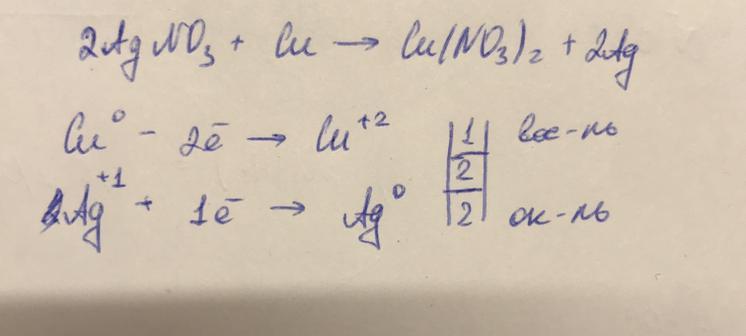 2AgNO₃ + Cu → Cu(NO₃)₂ + 2Ag
Cu⁰ - 2ē → Cu⁺² | 1 | вос-ль
2
Ag⁺¹ + 1ē → Ag⁰ | 2 | ок-ль